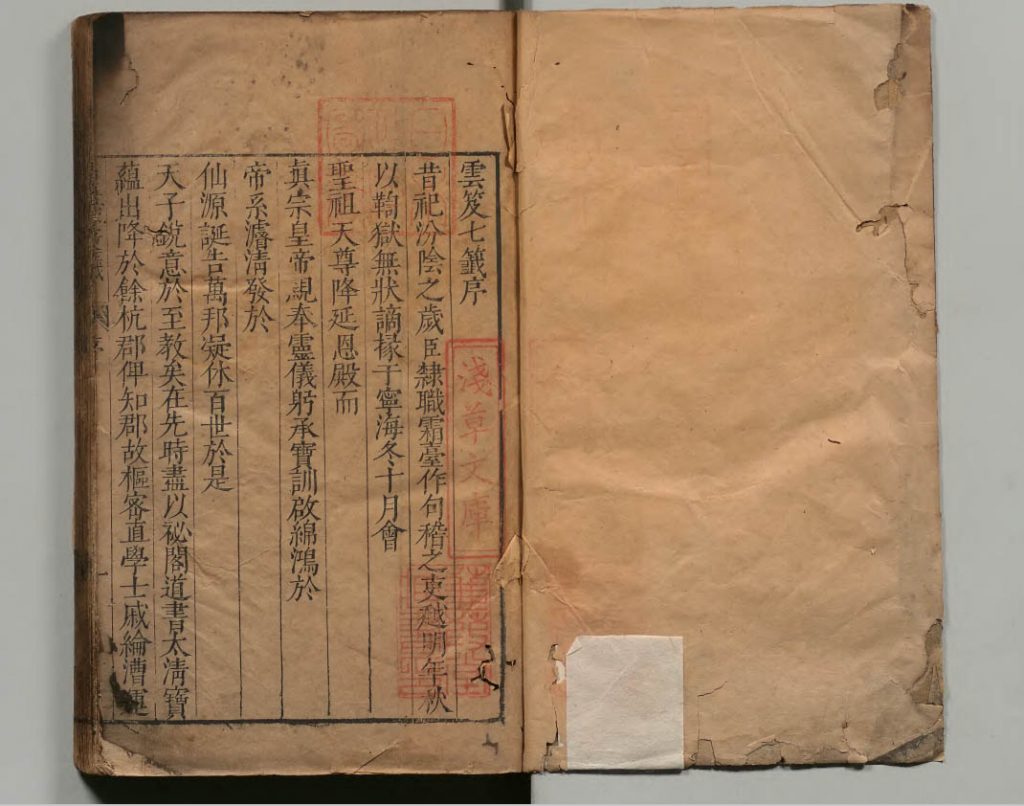 雲笈七籤序
昔祀汾陰之歲臣隸職霜臺作句稽之吏越明年秋
以鞫獄無狀謫掾于寧海冬十月會
聖祖天尊降延恩殿而
真宗皇帝親奉靈儀躬承寶訓啟綿鴻於
帝系濬清發於
仙源誕告萬邦凝休百世於是
天子銳意於至教矣在先時盡以祕閣道書太清寶
蘊出降於餘杭郡俾知郡故樞密直學士戚綸漕運
淺草文庫